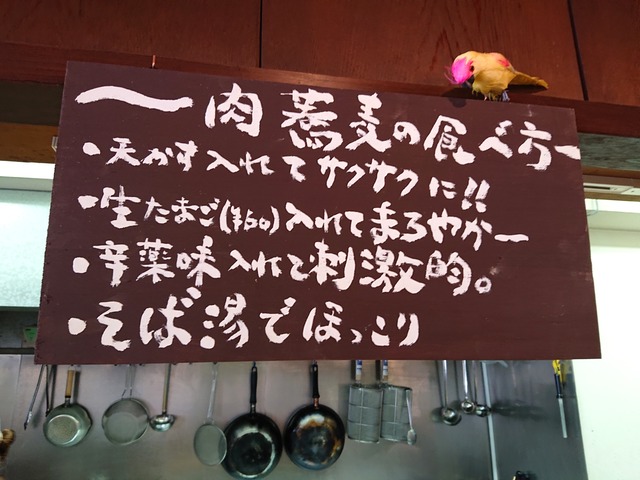 〜肉蕎麦の食べ方ー
・天かす入れてサクサクに!!
・生たまご(¥50)入れてまろやかー
・辛薬味入れて刺激的。
・そば湯でほっこり